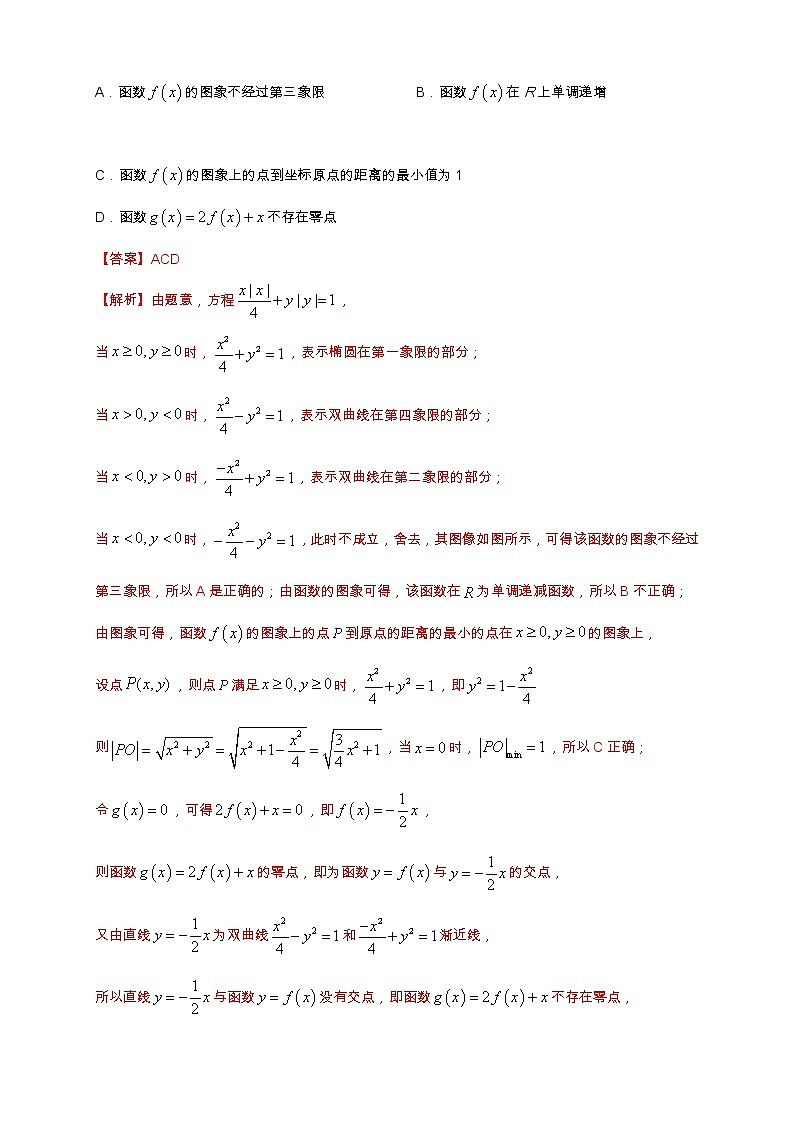 A．函数 f(x) 的图象不经过第三象限 B．函数 f(x) 在 R 上单调递增
C．函数 f(x) 的图象上的点到坐标原点的距离的最小值为 1
D．函数 g(x)=2f(x)+x 不存在零点
【答案】ACD
【解析】由题意，方程 \frac{x|x|}{4}+y|y|=1，
当 x≥0,y≥0 时，\frac{x^2}{4}+y^2=1，表示椭圆在第一象限的部分；
当 x>0,y<0 时，\frac{x^2}{4}-y^2=1，表示双曲线在第四象限的部分；
当 x<0,y>0 时，\frac{-x^2}{4}+y^2=1，表示双曲线在第二象限的部分；
当 x<0,y<0 时，-\frac{x^2}{4}-y^2=1，此时不成立，舍去，其图像如图所示，可得该函数的图象不经过
第三象限，所以 A 是正确的；由函数的图象可得，该函数在 R 为单调递减函数，所以 B 不正确；
由图象可得，函数 f(x) 的图象上的点 P 到原点的距离的最小的点在 x≥0,y≥0 的图象上，
设点 P(x,y)，则点 P 满足 x≥0,y≥0 时，\frac{x^2}{4}+y^2=1，即 y^2=1-\frac{x^2}{4}
则 |PO|=\sqrt{x^2+y^2}=\sqrt{x^2+1-\frac{x^2}{4}}=\sqrt{\frac{3}{4}x^2+1}，当 x=0 时，|PO|_{min}=1，所以 C 正确；
令 g(x)=0，可得 2f(x)+x=0，即 f(x)=-\frac{1}{2}x，
则函数 g(x)=2f(x)+x 的零点，即为函数 y=f(x) 与 y=-\frac{1}{2}x 的交点，
又由直线 y=-\frac{1}{2}x 为双曲线 \frac{x^2}{4}-y^2=1 和 \frac{-x^2}{4}+y^2=1 渐近线，
所以直线 y=-\frac{1}{2}x 与函数 y=f(x) 没有交点，即函数 g(x)=2f(x)+x 不存在零点，